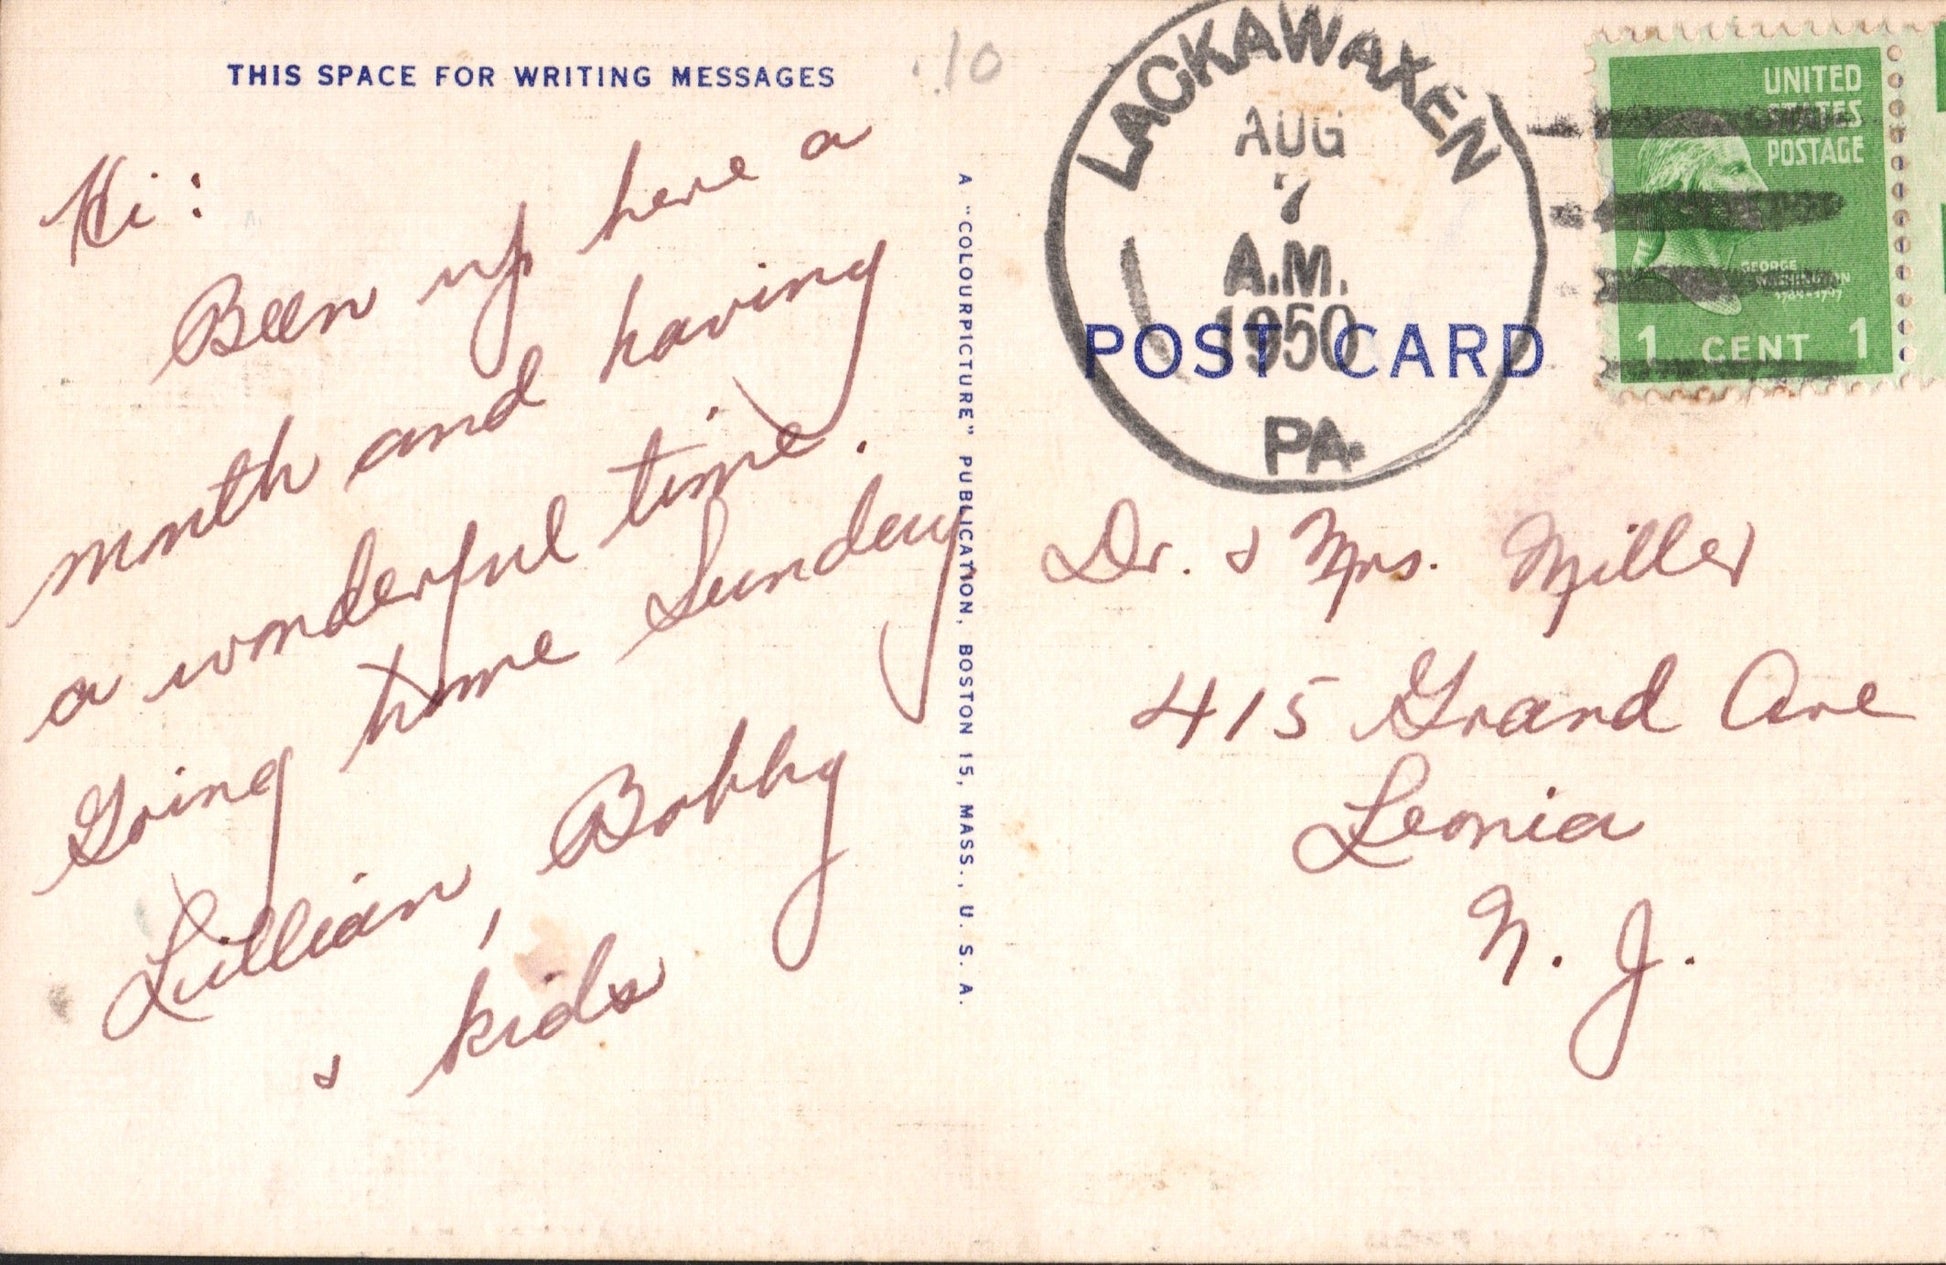 THIS SPACE FOR WRITING MESSAGES
.10
Hi:
Been up here a
month and having
a wonderful time.
Going home Sunday
Lillian, Bobby
& kids
A "COLOURPICTURE" PUBLICATION, BOSTON 15, MASS., U. S. A.
LACKAWAXEN
AUG
7
A.M.
1950
PA.
UNITED
STATES
POSTAGE
GEORGE
WASHINGTON
1 CENT 1
POST CARD
Dr. & Mrs. Miller
415 Grand Ave
Leonia
N. J.